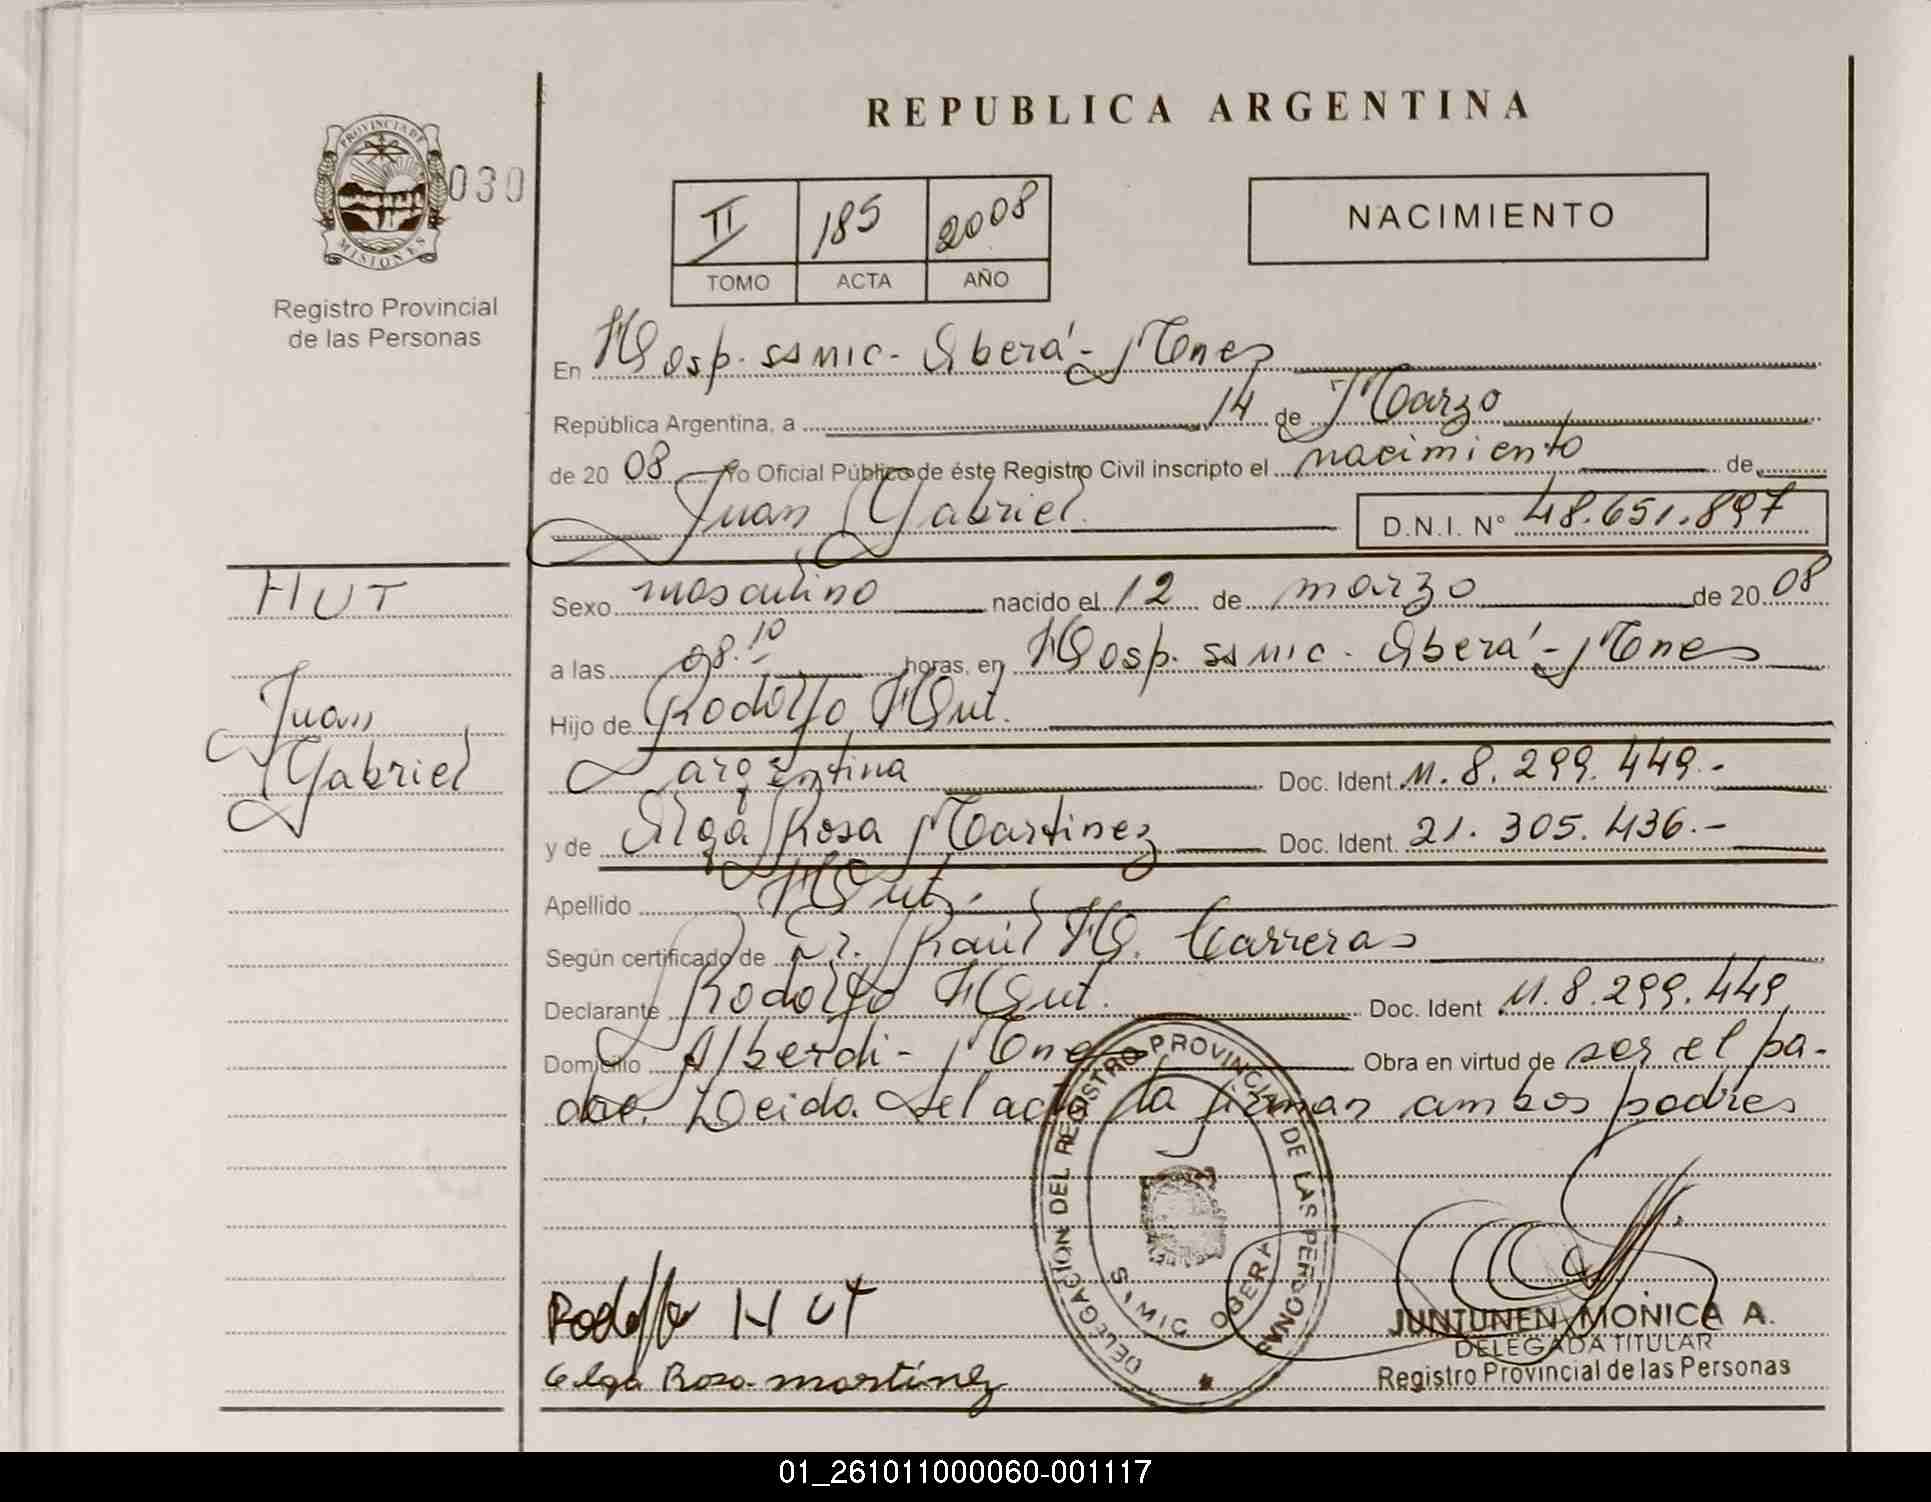 REPUBLICA ARGENTINA
PROVINCIA DE
MISIONES
030
Registro Provincial
de las Personas
II 185 2008
TOMO ACTA AÑO
NACIMIENTO
En Hosp. ssmic - Oberá - Mnes
República Argentina, a 14 de Marzo
de 20 08 Yo Oficial Público de éste Registro Civil inscripto el nacimiento de
Juan Gabriel. D.N.I. N° 48.651.897
HUT
Juan
Gabriel
Sexo masculino nacido el 12 de marzo de 20 08
a las 08.10 horas, en Hosp. ssmic - Oberá - Mnes
Hijo de Rodolfo Hut.
argentina Doc. Ident. M. 8.299.449.-
y de Olga Rosa Martinez Doc. Ident. 21.305.436.-
Apellido Hut.
Según certificado de Dr. Raúl H. Carreras
Declarante Rodolfo Hut. Doc. Ident M. 8.299.449
Domicilio Alberdi - Mnes Obra en virtud de ser el pa-
dre. Leida del acta la firman ambos padres
DELEGACION DEL REGISTRO PROVINCIAL DE LAS PERSONAS
OBERA
Rodolfo HUT
Olga Rosa martinez
JUNTUNEN MONICA A.
DELEGADA TITULAR
Registro Provincial de las Personas
01_261011000060-001117